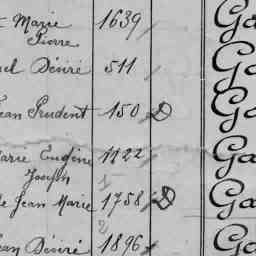 Marie 1639 / Ga
Pierre
el Désiré 511 / Ga
Jean Prudent 150 / D Ga
Marie Eugène 1122 / Ga
Joseph 1
Jean Marie 1758 / D Ga
2
Jean Désiré 1896 Ga